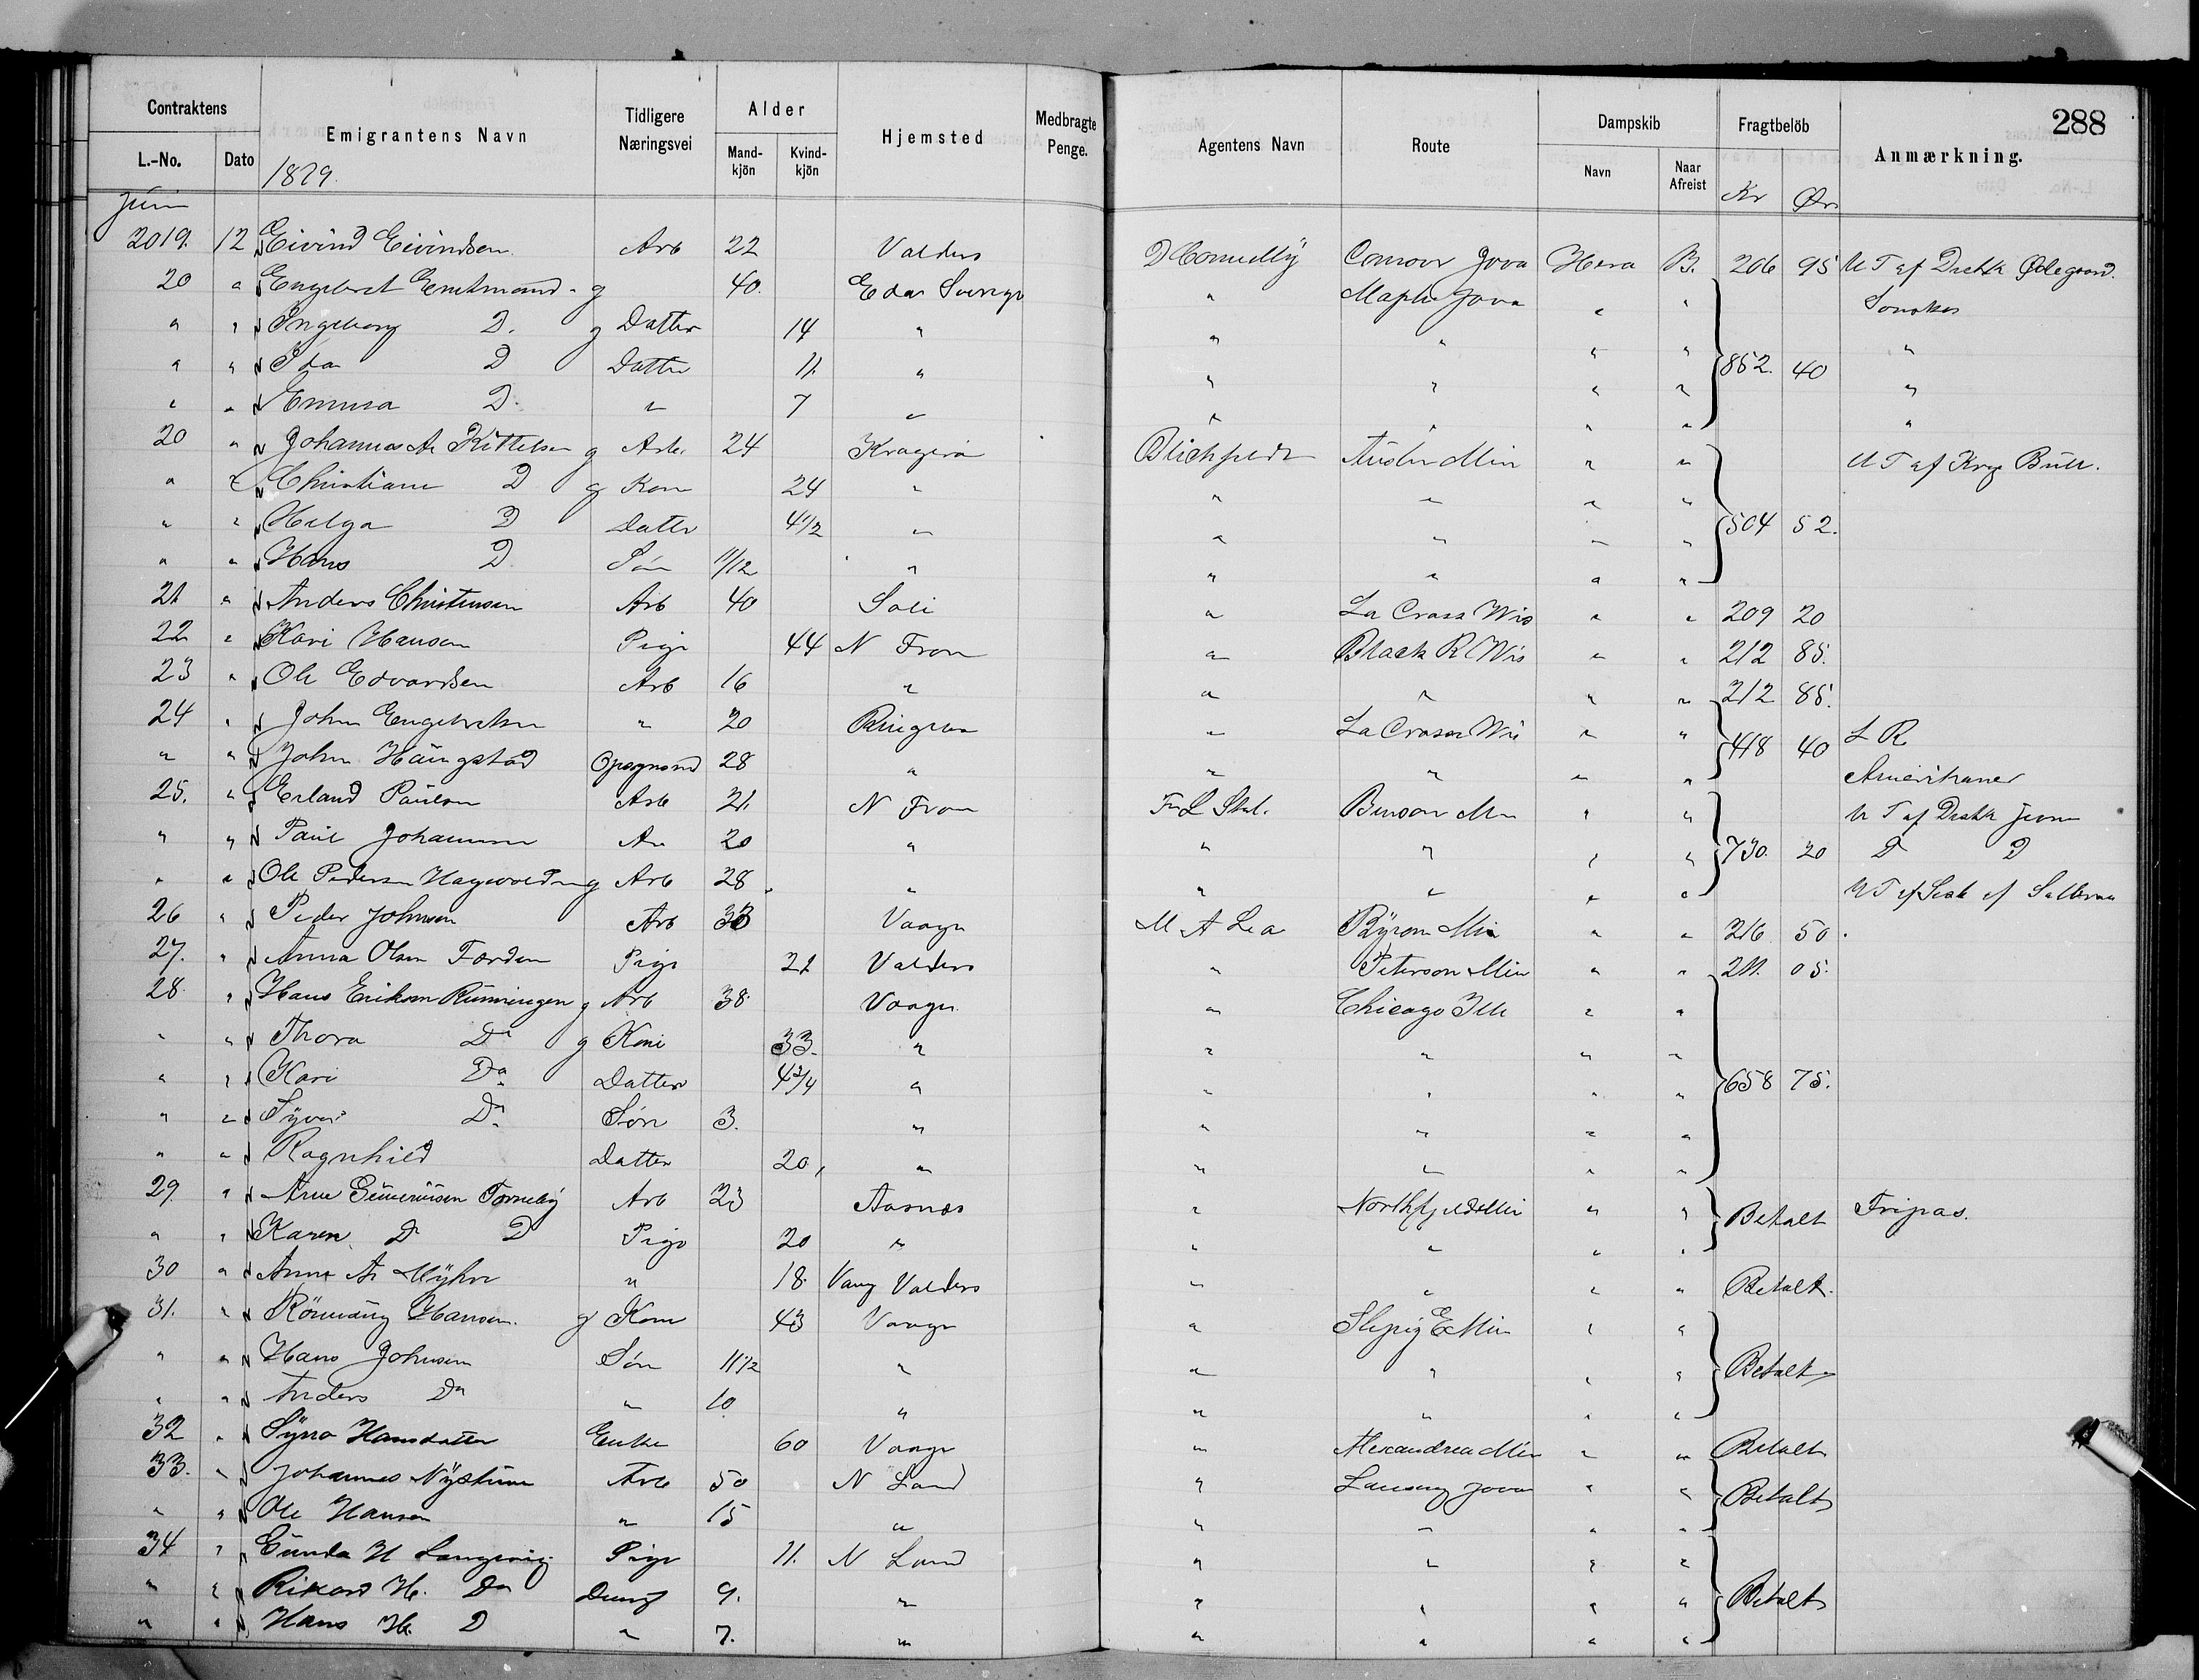 288
Contraktens Emigrantens Navn Tidligere Næringsvei Alder Hjemsted Medbragte Penge. Agentens Navn Route Dampskib Fragtbelöb Anmærkning.
L.-No. Dato 1879. Mandkjön Kvindkjön Navn Naar Afreist Kr Ør
Juni
2019. 12 Eivind Eivindsen Arb 22 Valders D Connelly Conover Jova Hero B. 206 95 U T af Drchk Ødegaard
20 " Engebret Gretmand g 40. Eda Sverige " Maple Jova " "
" " Ingeborg D. g Datter 14 " " " " " "
" " Ida D Datter 11. " " " " " 852. 40 "
" " Emma D " 7 " " " " " "
20 " Johannes A Kittelsen g Arb. 24 Kragerø Blichfeldt Austin Min " " U T af Krag Bull.
" " Christiane D g Kone 24 " " " " "
" " Helga D Datter 4 1/2 " " " " " 504 52.
" " Hans D Søn 11/12 " " " " "
21 " Anders Christensen Arb 40 Sali " La Cross Wis " " 209 20
22 " Kari Hansen Pige 44 N Fron " Black R Wis " " 212 85.
23 " Ole Edvardsen Arb 16 " " " " " 212 85.
24 " John Engebretsen " 20 Ringebu " La Crosse Wis " " 418 40 L R
" " John Haugstad 28 " " " " " Amerikaner
25. " Erland Paulsen Arb 21. N Fron Fr L Skul. Benson Min " " U T af Drchk
" " Paul Johannesen Ar 20 " " " " " 730. 20 D D
" " Ole Pedersen g Arb 28 " " " " "
26 " Peder Johnsen Arb 33 Vaage M A Lea Byron Min " " 216 50.
27. " Anna Olsen Pige 21 Valders " Peterson Min " " 211. 05.
28. " Hans Eriksen Runningen g Arb 38. Vaage " Chicago Ill " "
" " Thora Do g Kone 33. " " " " "
" " Kari Do Datter 4 3/4 " " " " " 658 75.
" " Syver Do Søn 3. " " " " "
" " Ragnhild Datter 20, " " " " "
29 " Arne Gunerius Torneby Arb 23 Aasnes " Northfield Min " " Betalt Fripas.
" " Karen D D Pige 20 " " " " "
30 " Anne A Myhre " 18. Vang Valders " " " " Betalt.
31. " Rönnaug Hansen. g Kone 43 Vaage " Slepig E Min " "
" " Hans Johnsen Søn 11 1/2 " " " " " Betalt
" " Anders Do " 10 " " " " "
32 " Synø Hansdatter Enke 60 Vaage " Alexandrea Min " " Betalt
33. " Johannes Nystuen Arb 50 N Land " Lansing Jova " " Betalt
" " Ole Hansen " 15 " " " " "
34 " Gunda H Langvig Pige 11. N Land " " " "
" " Rikard H. Do Dreng 9. " " " " " Betalt
" " Hans H. D " 7. " " " " "